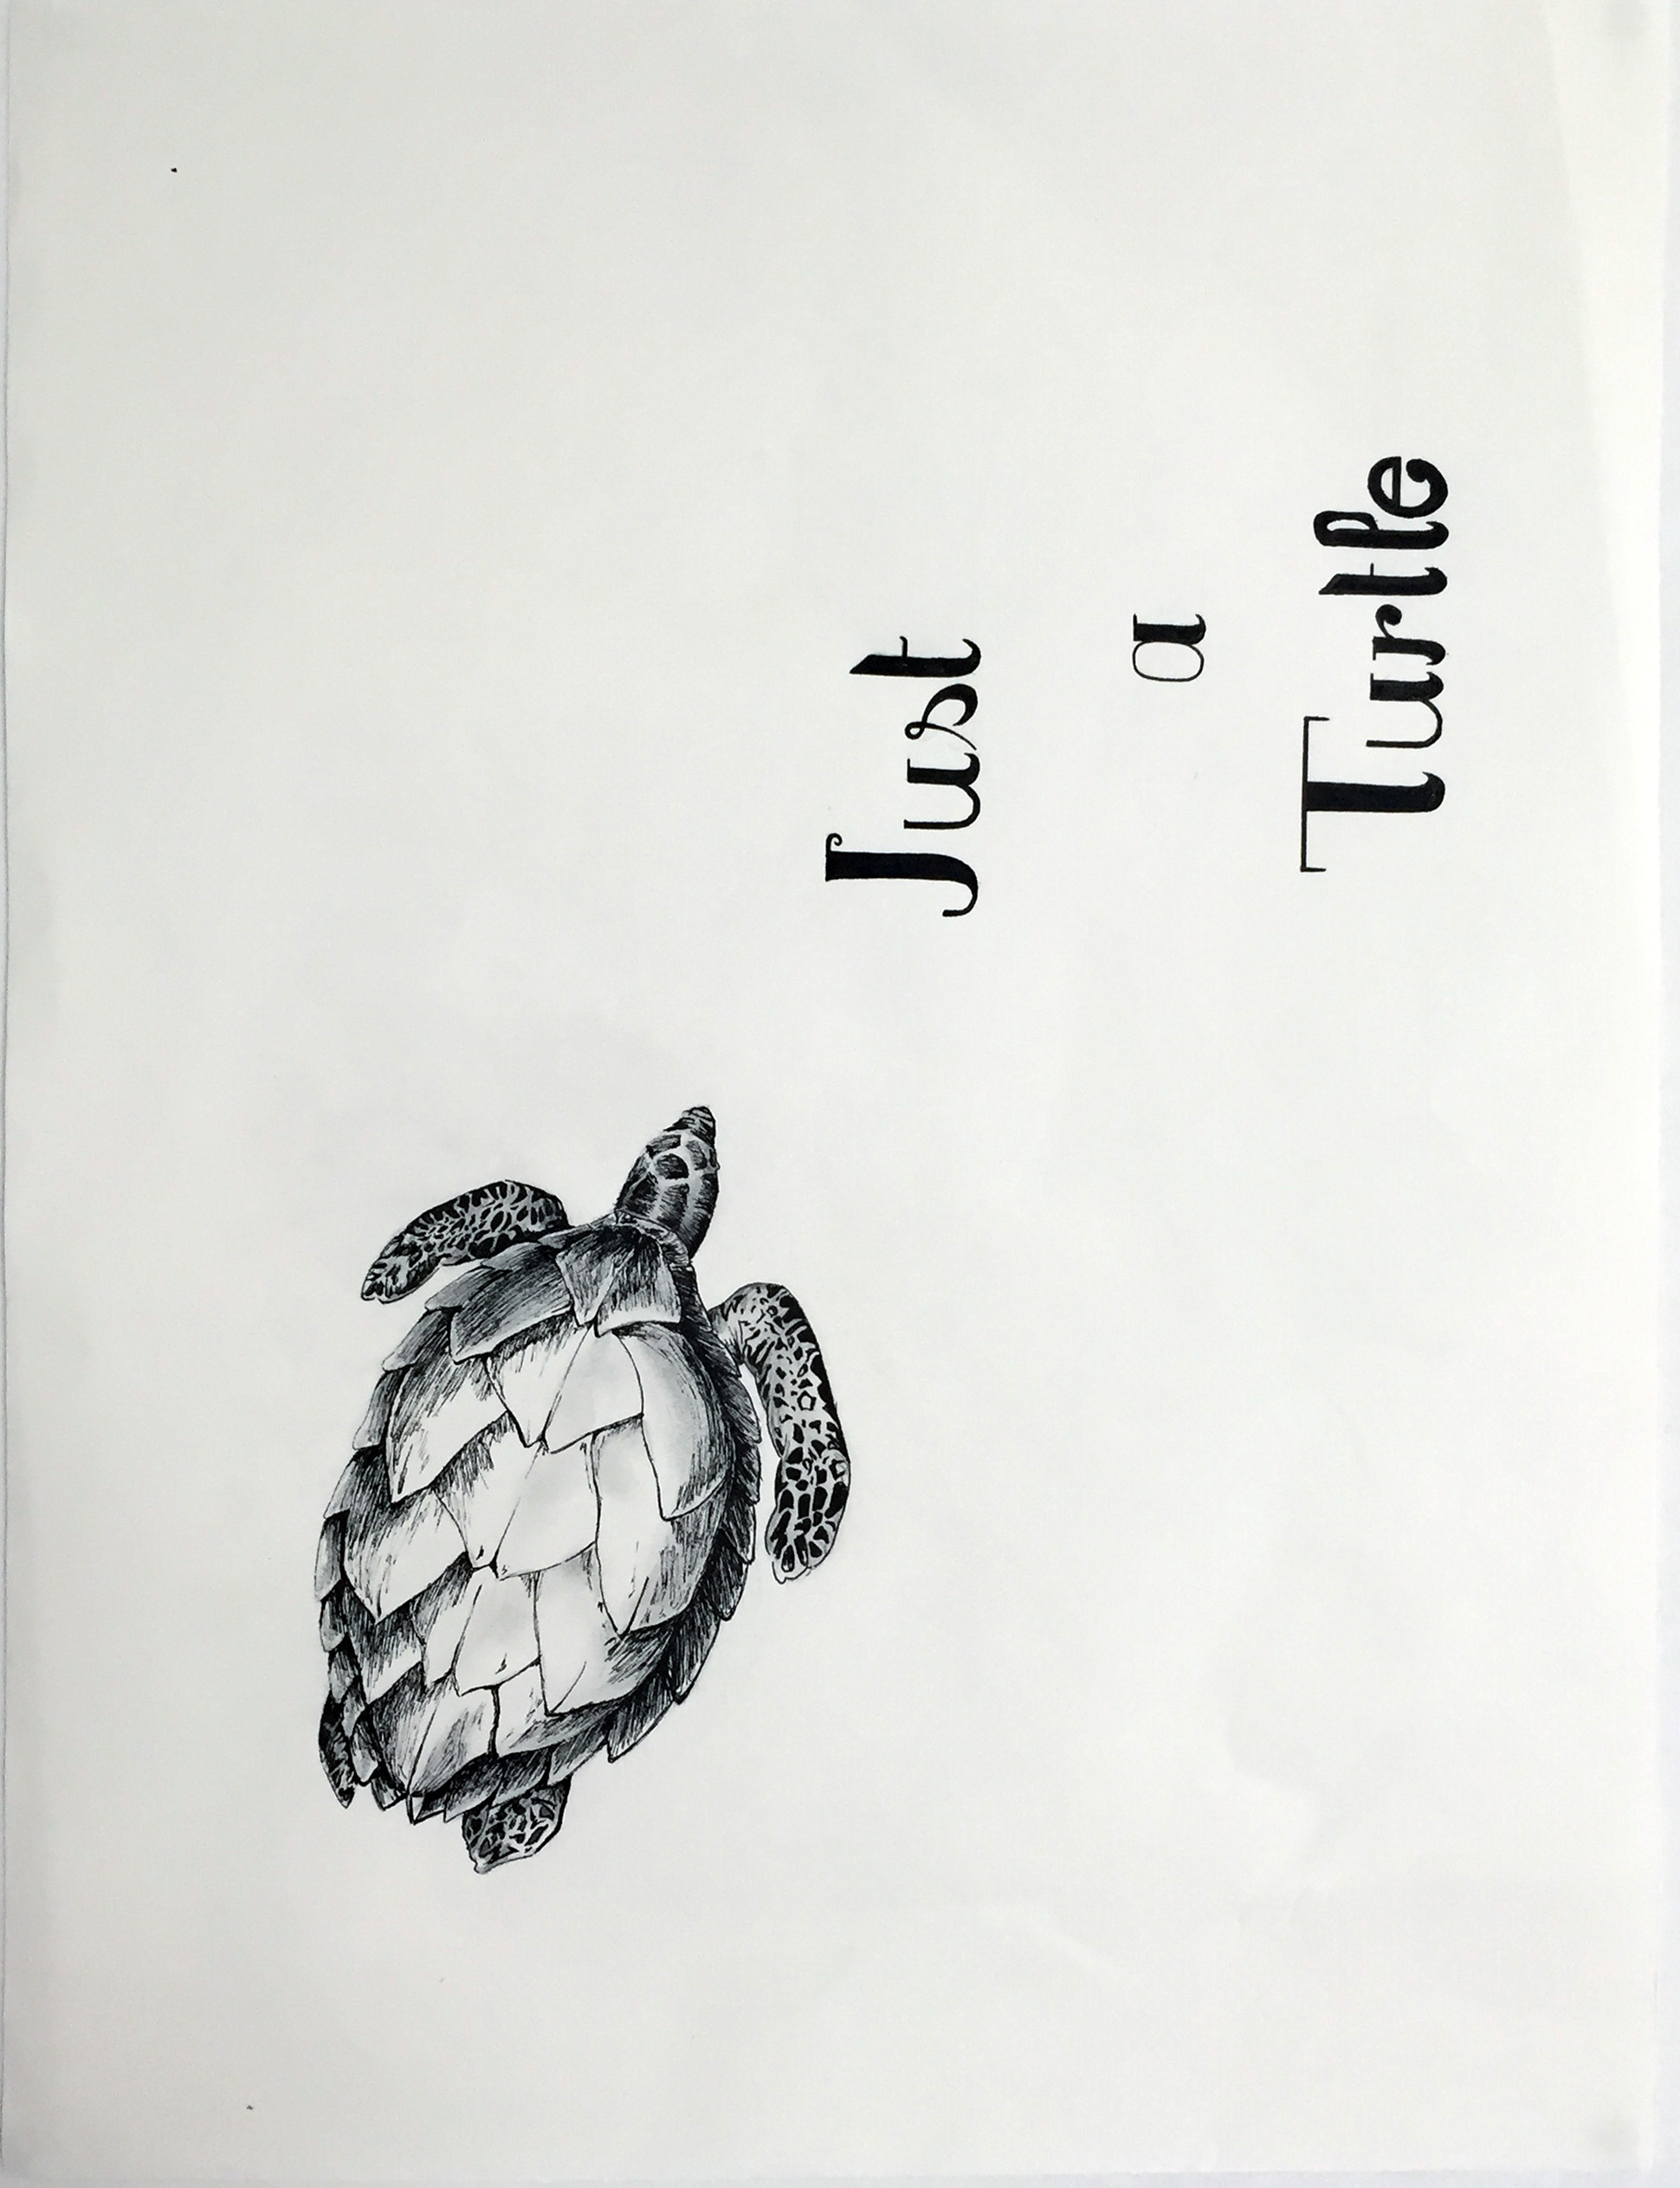 Just
a
Turtle